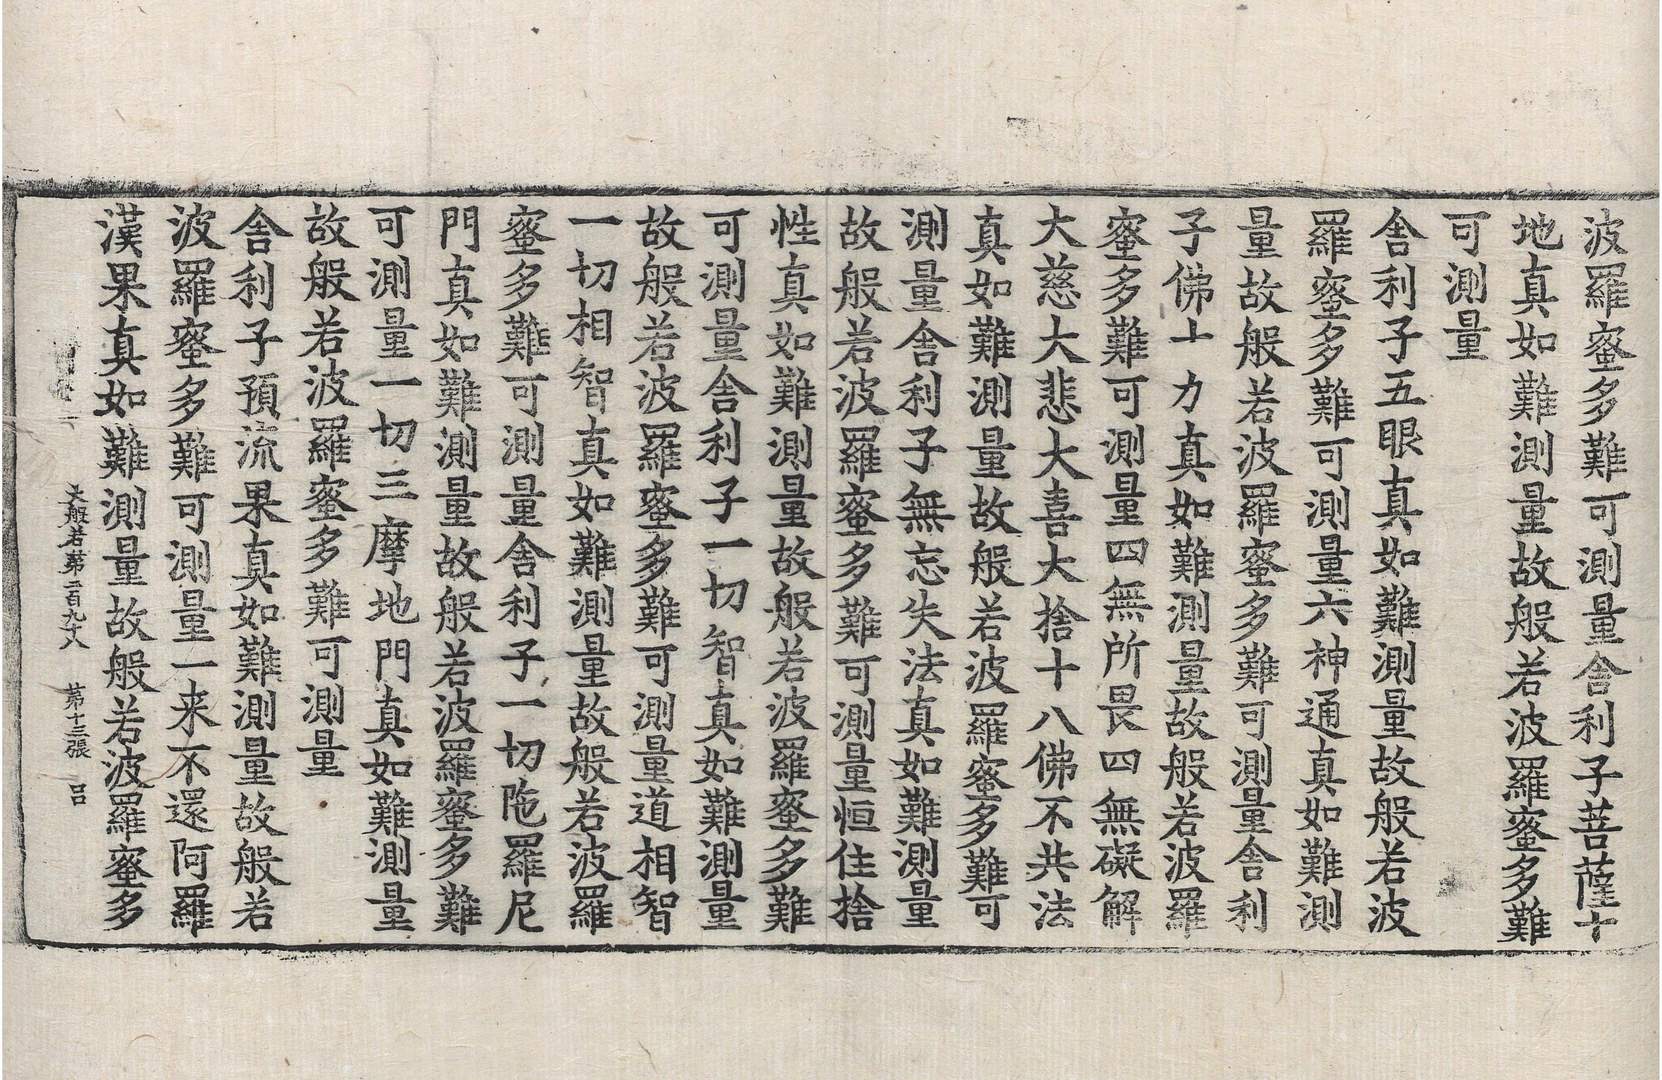 波羅蜜多難可測量舍利子菩薩十
地真如難測量故般若波羅蜜多難
可測量
舍利子五眼真如難測量故般若波
羅蜜多難可測量六神通真如難測
量故般若波羅蜜多難可測量舍利
子佛十力真如難測量故般若波羅
蜜多難可測量四無所畏四無礙解
大慈大悲大喜大捨十八佛不共法
真如難測量故般若波羅蜜多難可
測量舍利子無忘失法真如難測量
故般若波羅蜜多難可測量恒住捨
性真如難測量故般若波羅蜜多難
可測量舍利子一切智真如難測量
故般若波羅蜜多難可測量道相智
一切相智真如難測量故般若波羅
蜜多難可測量舍利子一切陁羅尼
門真如難測量故般若波羅蜜多難
可測量一切三摩地門真如難測量
故般若波羅蜜多難可測量
舍利子預流果真如難測量故般若
波羅蜜多難可測量一来不還阿羅
漢果真如難測量故般若波羅蜜多
大般若第二百九十八 第十三張 呂